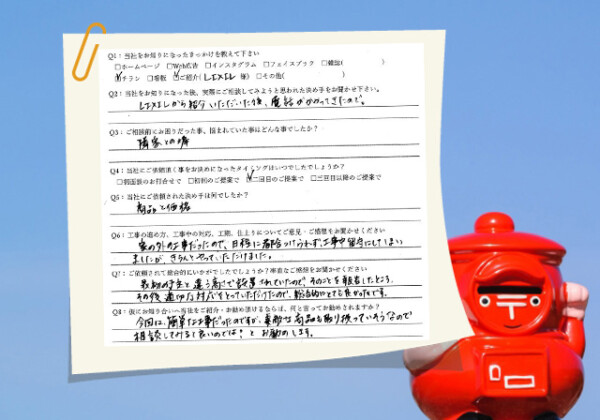 Q1：当社をお知りになったきっかけを教えて下さい
□ホームページ □Web広告 □インスタグラム □フェイスブック □雑誌( )
☑チラシ □看板 ☑ご紹介( LIXIL 様) □その他( )
Q2：当社をお知りになった後、実際にご相談してみようと思われた決め手をお聞かせ下さい。
LIXILから紹介いただいた後、電話がかかってきたので。
Q3：ご相談前にお困りだった事、悩まれていた事はどんな事でしたか？
隣家との塀
Q4：当社にご依頼頂く事をお決めになったタイミングはいつでしたでしょうか？
□初面談のお打合せで □初回のご提案で ☑二回目のご提案で □三回目以降のご提案で
Q5：当社にご依頼された決め手は何でしたか？
商品と価格
Q6：工事の進め方、工事中の対応、工期、仕上りについてご意見・ご感想をお聞かせください
家の外の工事だったので、日程に都合つけられず、工事中留守にしてしまい
ましたが、きちんとやっていただけました。
Q7：ご依頼されて総合的にいかがでしたでしょうか？率直なご感想をお聞かせください
当初の予定と違う高さで設置されていたので、そのことを報告したところ、
その後、適切な対応をとっていただけたので、総合的にとても良かったです。
Q8：仮にお知り合いへ当社をご紹介・お勧め頂けるならば、何と言ってお勧めされますか？
今回は、簡単な工事だったのですが、素敵な商品も取り扱っていそうなので
相談してみると良いのでは？とお勧めします。
〒